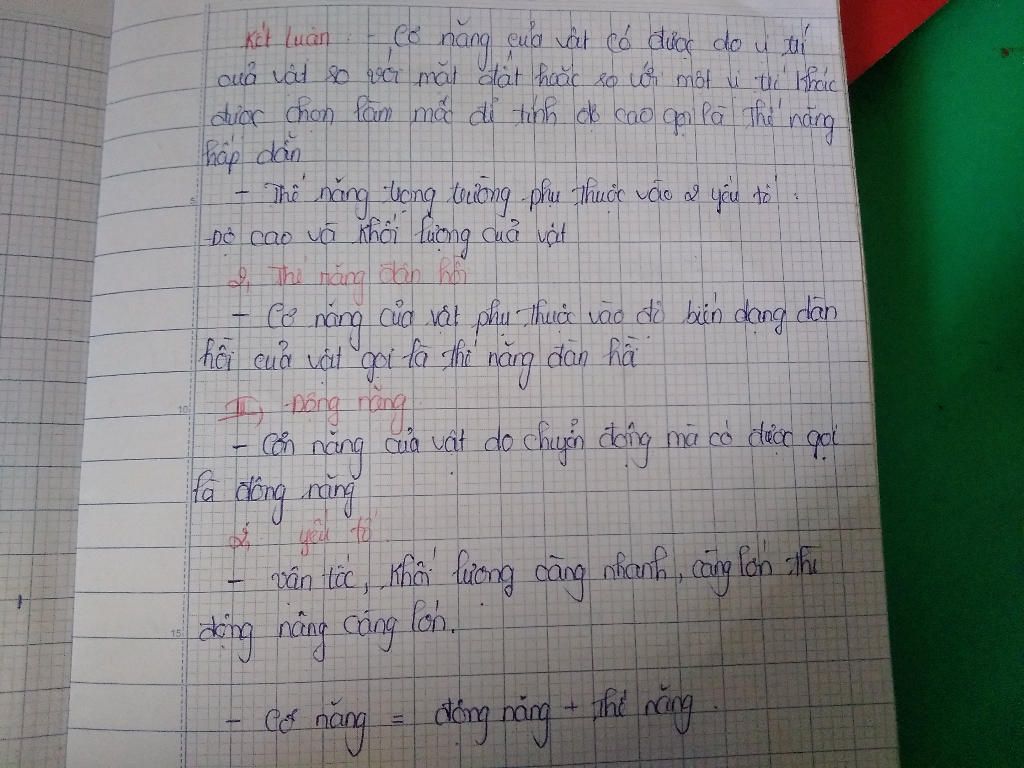 Kết luận : - Cơ năng của vật có được do vị trí
của vật so với mặt đất hoặc so với một vị trí khác
được chọn làm mốc để tính độ cao gọi là thế năng
hấp dẫn
- Thế năng trọng trường phụ thuộc vào 2 yếu tố :
Độ cao và khối lượng của vật
2, Thế năng đàn hồi
- Cơ năng của vật phụ thuộc vào độ biến dạng đàn
hồi của vật gọi là thế năng đàn hồi
II, Động năng
- Cơn năng của vật do chuyển động mà có được gọi
là động năng
2, yếu tố
- vận tốc, khối lượng càng nhanh, càng lớn thì
động năng càng lớn.
- Cơ năng = động năng + thế năng.
5
10
15